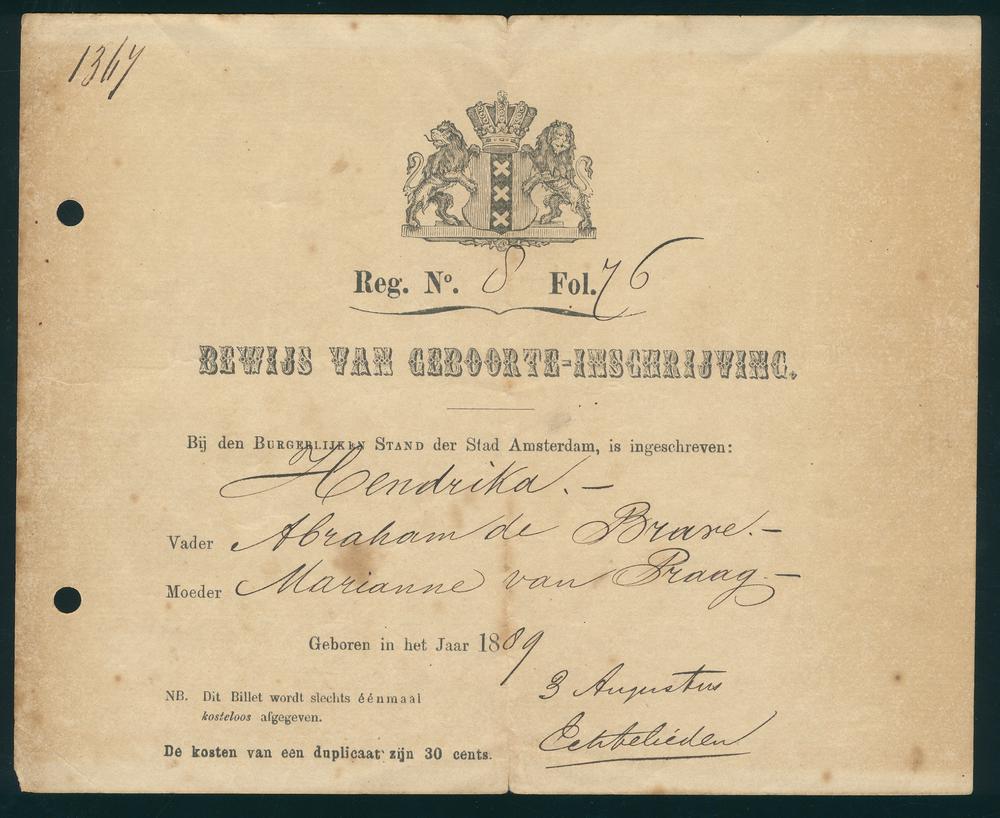 1367
Reg. Nº. 8 Fol. 76
BEWIJS VAN GEBOORTE-INSCHRIJVING.
Bij den BURGERLIJKEN STAND der Stad Amsterdam, is ingeschreven:
Hendrika. —
Vader Abraham de Brave. —
Moeder Marianne van Praag. —
Geboren in het Jaar 1889
3 Augustus
NB. Dit Billet wordt slechts éénmaal
kosteloos afgegeven.
Echtelieden
De kosten van een duplicaat zijn 30 cents.